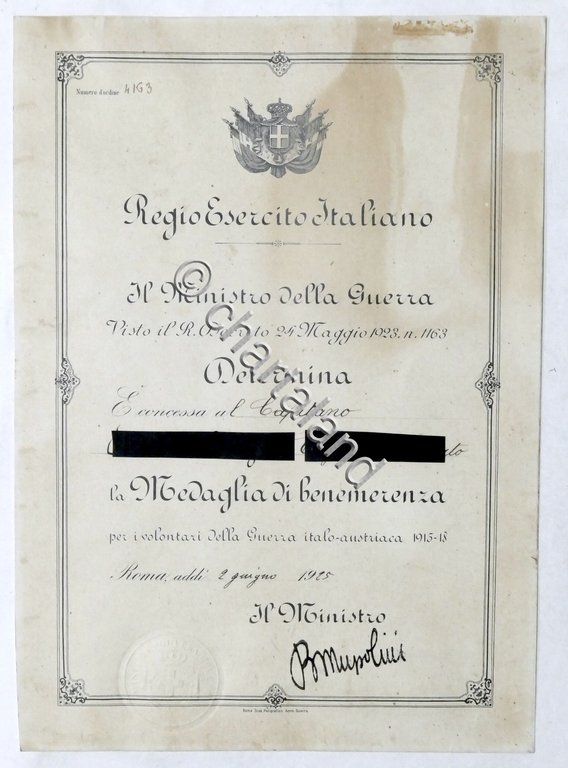 Numero d'ordine 4163
Regio Esercito Italiano
Il Ministro della Guerra
Visto il R. Decreto 24 Maggio 1923. n. 1163
Determina
È concessa al Capitano
la Medaglia di benemerenza
per i volontari della Guerra italo-austriaca 1915-18
Roma, addì 2 giugno 1925
Il Ministro
B Mussolini
© chartaland